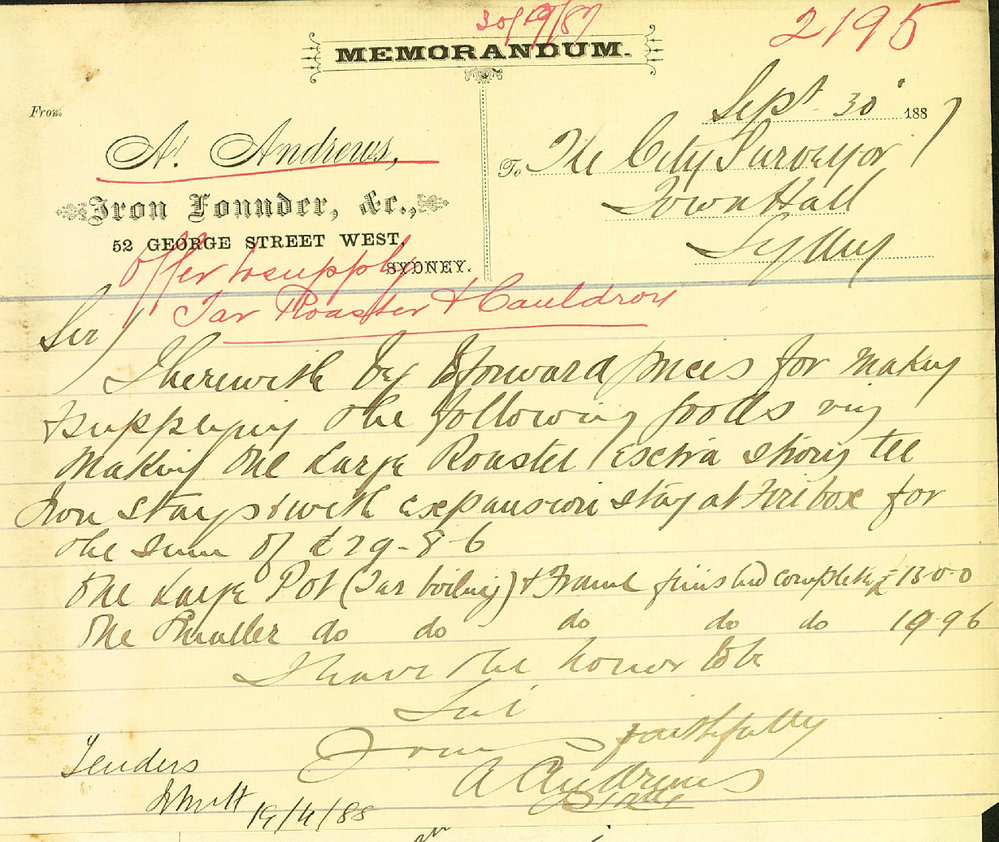 30/9/87
2195
MEMORANDUM.
From
A. Andrews,
Iron Founder, &c.,
52 GEORGE STREET WEST,
SYDNEY.
Sept 30 1887
To The City Surveyor
Town Hall
Sydney
Offer to supply
Tar Roaster & Cauldron
Sir
I herewith beg to forward prices for making
& supplying the following goods viz
Making One Large Roaster Extra strong tee
Iron stays & with expansion stay at Fire box for
the sum of £29-8-6
One Large Pot (Tar boiling) & Frame finished complete £13-0-0
One Smaller do do do do do 10-9-6
I have the honor to be
Sir
Yours faithfully
A Andrews
Tenders
19/4/88